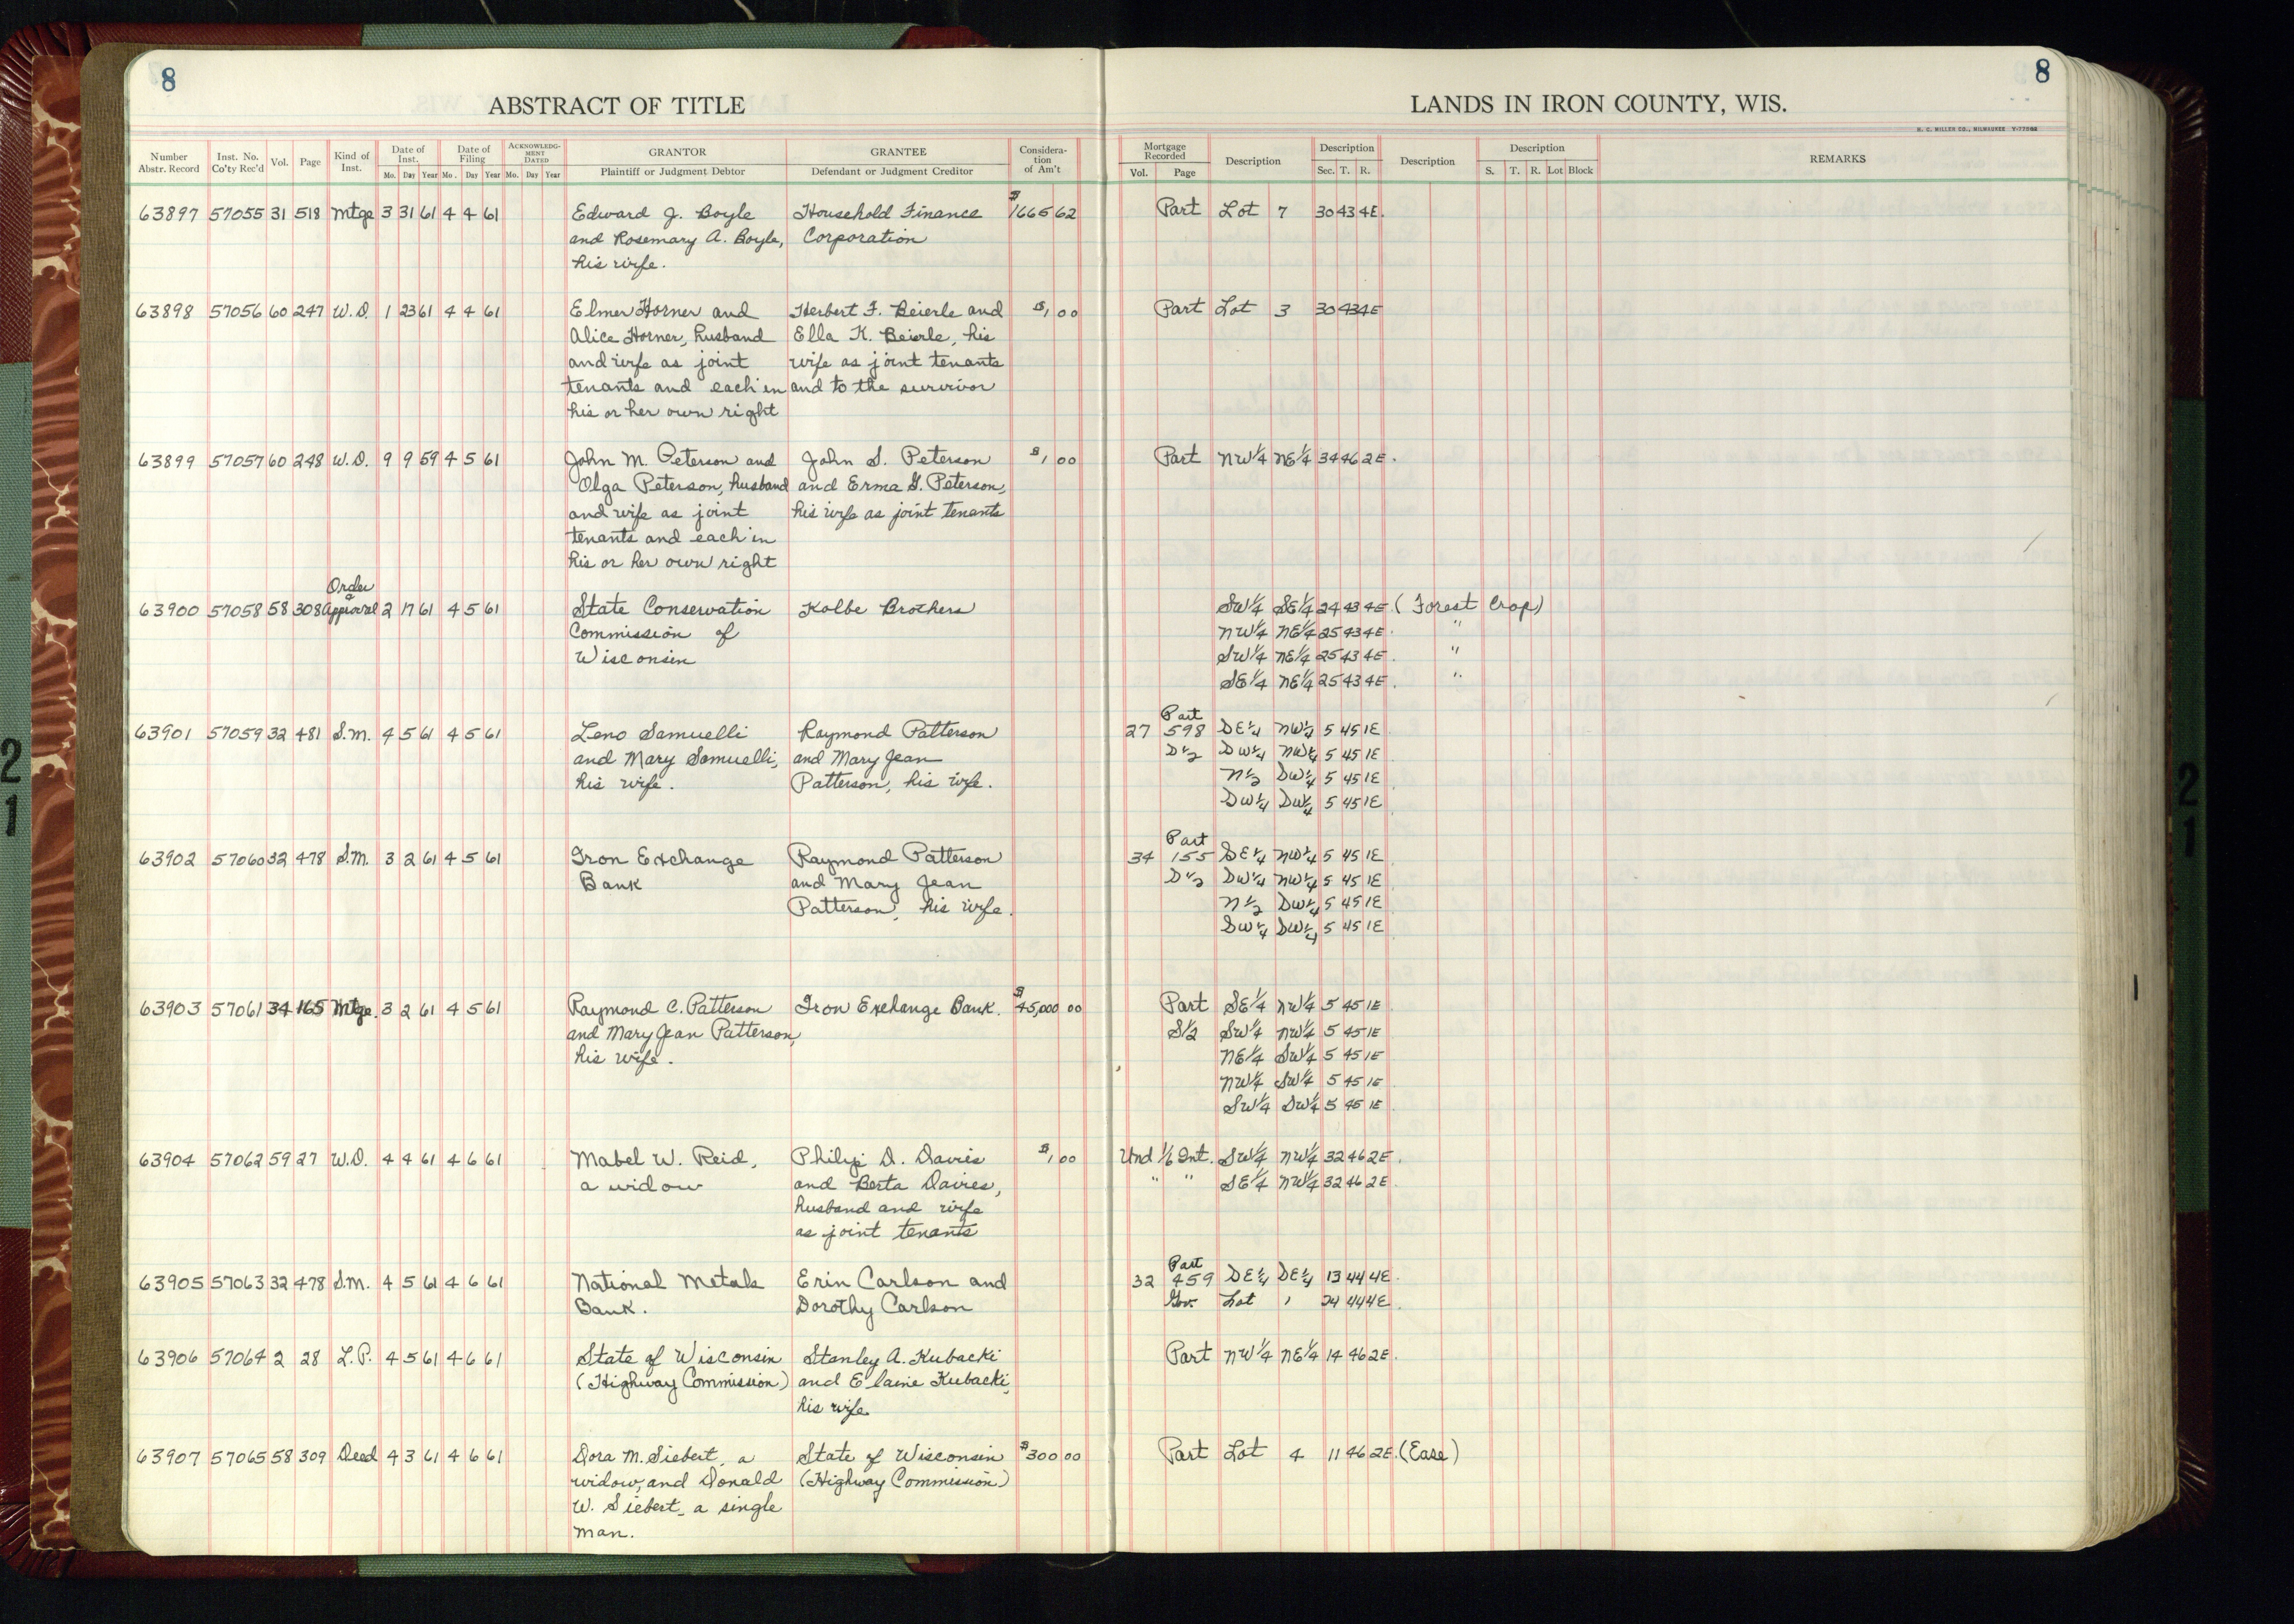 8
8
ABSTRACT OF TITLE
LANDS IN IRON COUNTY, WIS.
H. C. MILLER CO., MILWAUKEE Y-77988
Number Abstr. Record Inst. No. Co'ty Rec'd Vol. Page Kind of Inst. Date of Inst. Mo. Day Year Date of Filing Mo. Day Year ACKNOWLEDGMENT DATED Mo. Day Year GRANTOR Plaintiff or Judgment Debtor GRANTEE Defendant or Judgment Creditor Consideration of Am't
Mortgage Recorded Vol. Page Description Description Sec. T. R. Description Description S. T. R. Lot Block REMARKS
63897 57055 31 518 Mtge 3 31 61 4 4 61 Edward J. Boyle Household Finance $1665 62 Part Lot 7 30 43 4E.
and Rosemary A. Boyle, Corporation
his wife.
63898 57056 60 247 W.D. 1 23 61 4 4 61 Elmer Horner and Herbert F. Beierle and $1 00 Part Lot 3 30 43 4E
Alice Horner, husband Ella K. Beierle, his
and wife as joint wife as joint tenants
tenants and each in and to the survivor
his or her own right
63899 57057 60 248 W.D. 9 9 59 4 5 61 John M. Peterson and John S. Peterson $1 00 Part NW1/4 NE1/4 34 46 2E.
Olga Peterson, husband and Erma G. Peterson,
and wife as joint his wife as joint tenants
tenants and each in
his or her own right
Order
63900 57058 58 308 Approval 2 17 61 4 5 61 State Conservation Kolbe Brothers SW1/4 SE1/4 24 43 4E. (Forest Crop)
Commission of NW1/4 NE1/4 25 43 4E. "
Wisconsin SW1/4 NE1/4 25 43 4E. "
SE1/4 NE1/4 25 43 4E. "
Part
63901 57059 32 481 S.M. 4 5 61 4 5 61 Leno Samuelli Raymond Patterson 27 598 SE1/4 NW1/4 5 45 1E
and Mary Samuelli, and Mary Jean S1/2 SW1/4 NW1/4 5 45 1E
his wife. Patterson, his wife. N1/2 SW1/4 5 45 1E
SW1/4 SW1/4 5 45 1E
Part
63902 57060 32 478 S.M. 3 2 61 4 5 61 Iron Exchange Raymond Patterson 34 155 SE1/4 NW1/4 5 45 1E
Bank and Mary Jean S1/2 SW1/4 NW1/4 5 45 1E
Patterson, his wife. N1/2 SW1/4 5 45 1E
SW1/4 SW1/4 5 45 1E
63903 57061 34 165 Mtge. 3 2 61 4 5 61 Raymond C. Patterson Iron Exchange Bank. $45,000 00 Part SE1/4 NW1/4 5 45 1E
and Mary Jean Patterson, S1/2 SW1/4 NW1/4 5 45 1E
his wife. NE1/4 SW1/4 5 45 1E
NW1/4 SW1/4 5 45 1E
SW1/4 SW1/4 5 45 1E
63904 57062 59 27 W.D. 4 4 61 4 6 61 Mabel W. Reid, Philip D. Davies $1 00 Und 1/6 Int. SW1/4 NW1/4 32 46 2E.
a widow and Berta Davies, " " SE1/4 NW1/4 32 46 2E.
husband and wife
as joint tenants
Part
63905 57063 32 478 S.M. 4 5 61 4 6 61 National Metals Erin Carlson and 32 459 SE1/4 SE1/4 13 44 4E.
Bank. Dorothy Carlson Gov. Lot 1 24 44 4E.
63906 57064 2 28 L.P. 4 5 61 4 6 61 State of Wisconsin Stanley A. Kubacki Part NW1/4 NE1/4 14 46 2E.
(Highway Commission) and Elaine Kubacki,
his wife
63907 57065 58 309 Deed 4 3 61 4 6 61 Dora M. Siebert, a State of Wisconsin $300 00 Part Lot 4 11 46 2E. (Ease)
widow, and Donald (Highway Commission)
W. Siebert, a single
man.
2
1
2
1